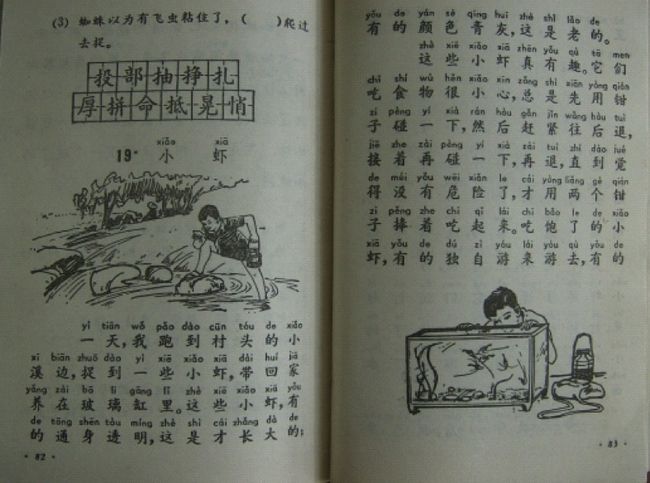 (3) 蜘蛛以为有飞虫粘住了，(  )爬过
去捉。
投部抽挣扎
厚拼命抵晃悄
xiǎo xiā
19* 小 虾
yì tiān wǒ pǎo dào cūn tóu de xiǎo
一天，我跑到村头的小
xī biān zhuō dào yì xiē xiǎo xiā dài huí jiā
溪边，捉到一些小虾，带回家
yǎng zài bō li gāng lǐ zhè xiē xiǎo xiā yǒu
养在玻璃缸里。这些小虾，有
de tōng shēn tòu míng zhè shì cái zhǎng dà de
的通身透明，这是才长大的；
82
yǒu de yán sè qīng huī zhè shì lǎo de
有的颜色青灰，这是老的。
zhè xiē xiǎo xiā zhēn yǒu qù tā men
这些小虾真有趣。它们
chī shí wù hěn xiǎo xīn zǒng shì xiān yòng qián
吃食物很小心，总是先用钳
zi pèng yí xià rán hòu gǎn jǐn wàng hòu tuì
子碰一下，然后赶紧往后退，
jiē zhe zài pèng yí xià zài tuì zhí dào jué
接着再碰一下，再退，直到觉
de méi yǒu wēi xiǎn le cái yòng liǎng gè qián
得没有危险了，才用两个钳
zi pěng zhe chī qǐ lái chī bǎo le de xiǎo
子捧着吃起来。吃饱了的小
xiā yǒu de dú zì yóu lái yóu qù yǒu de
虾，有的独自游来游去，有的
83